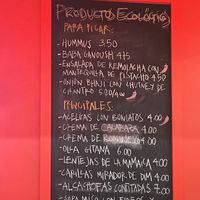 PRODUCTOS ECOLÓGICOS
PARA PICAR:
- HUMMUS 3.50
- BABA GANOUSH 4.75
- ENSALADA DE REMOLACHA CON
MANTEQUILLA DE PISTACHO 4.50
- ONION BHAJI CON CHUTNEY DE
CILANTRO 5.00/4u
PRINCIPALES:
- ACELGAS CON BONIATOS 4.00
- CREMA DE CALABAZA 4.00
- CREMA DE 4.00
- OLLA GITANA 6.00
- LENTEJAS DE LA MAMACA 4.00
- CARILLAS MIRADOR DE DIM 4.00
- ALCACHOFAS CONFITADAS 7.00
- SOPA MISO CON FIDEOS Y